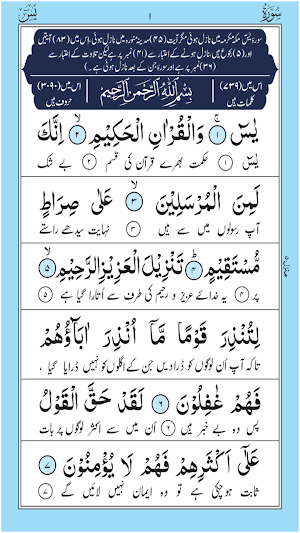 سورة ۱ یٰسٓ
سورۂ یٰسٓ مکہ مکرمہ میں نازل ہوئی مگر آیت (۴۵) مدینہ منورہ میں نازل ہوئی، اس میں (۸۳) آیتیں
اور (۵) رکوع ہیں نازل ہونے کے اعتبار سے (۴۱) نمبر پر ہے لیکن تلاوت کے اعتبار سے
(۳۶) نمبر پر ہے اور سورۂ جن کے بعد نازل ہوئی ہے۔
اس میں (۷۳۹) کلمات ہیں
بِسْمِ اللّٰهِ الرَّحْمٰنِ الرَّحِيْمِ
اس میں (۳۰۹۰) حروف ہیں
يٰسٓ ۚ ۱ وَالْقُرْاٰنِ الْحَكِيْمِ ۙ ۲ اِنَّكَ
یٰسٓ ۱ حکمت بھرے قرآن کی قسم ۲ بے شک
لَمِنَ الْمُرْسَلِيْنَ ۙ ۳ عَلٰى صِرَاطٍ
آپ رسولوں میں سے ہیں ۳ نہایت سیدھے راستے
مُّسْتَقِيْمٍ ؕ ۴ تَنْزِيْلَ الْعَزِيْزِ الرَّحِيْمِ ۙ ۵
پر ۴ یہ خدائے عزیز و رحیم کی طرف سے اُتارا گیا ہے ۵
منزل ۵
لِتُنْذِرَ قَوْمًا مَّاۤ اُنْذِرَ اٰبَآؤُهُمْ
تاکہ آپ اُن لوگوں کو ڈرا دیں جن کے اگلوں کو نہیں ڈرایا گیا،
فَهُمْ غٰفِلُوْنَ ۶ لَقَدْ حَقَّ الْقَوْلُ
پس وہ بے خبر ہیں ۶ اُن میں سے اکثر لوگوں پر بات
عَلٰۤى اَكْثَرِهِمْ فَهُمْ لَا يُؤْمِنُوْنَ ۷
ثابت ہو چکی ہے تو وہ ایمان نہیں لائیں گے ۷